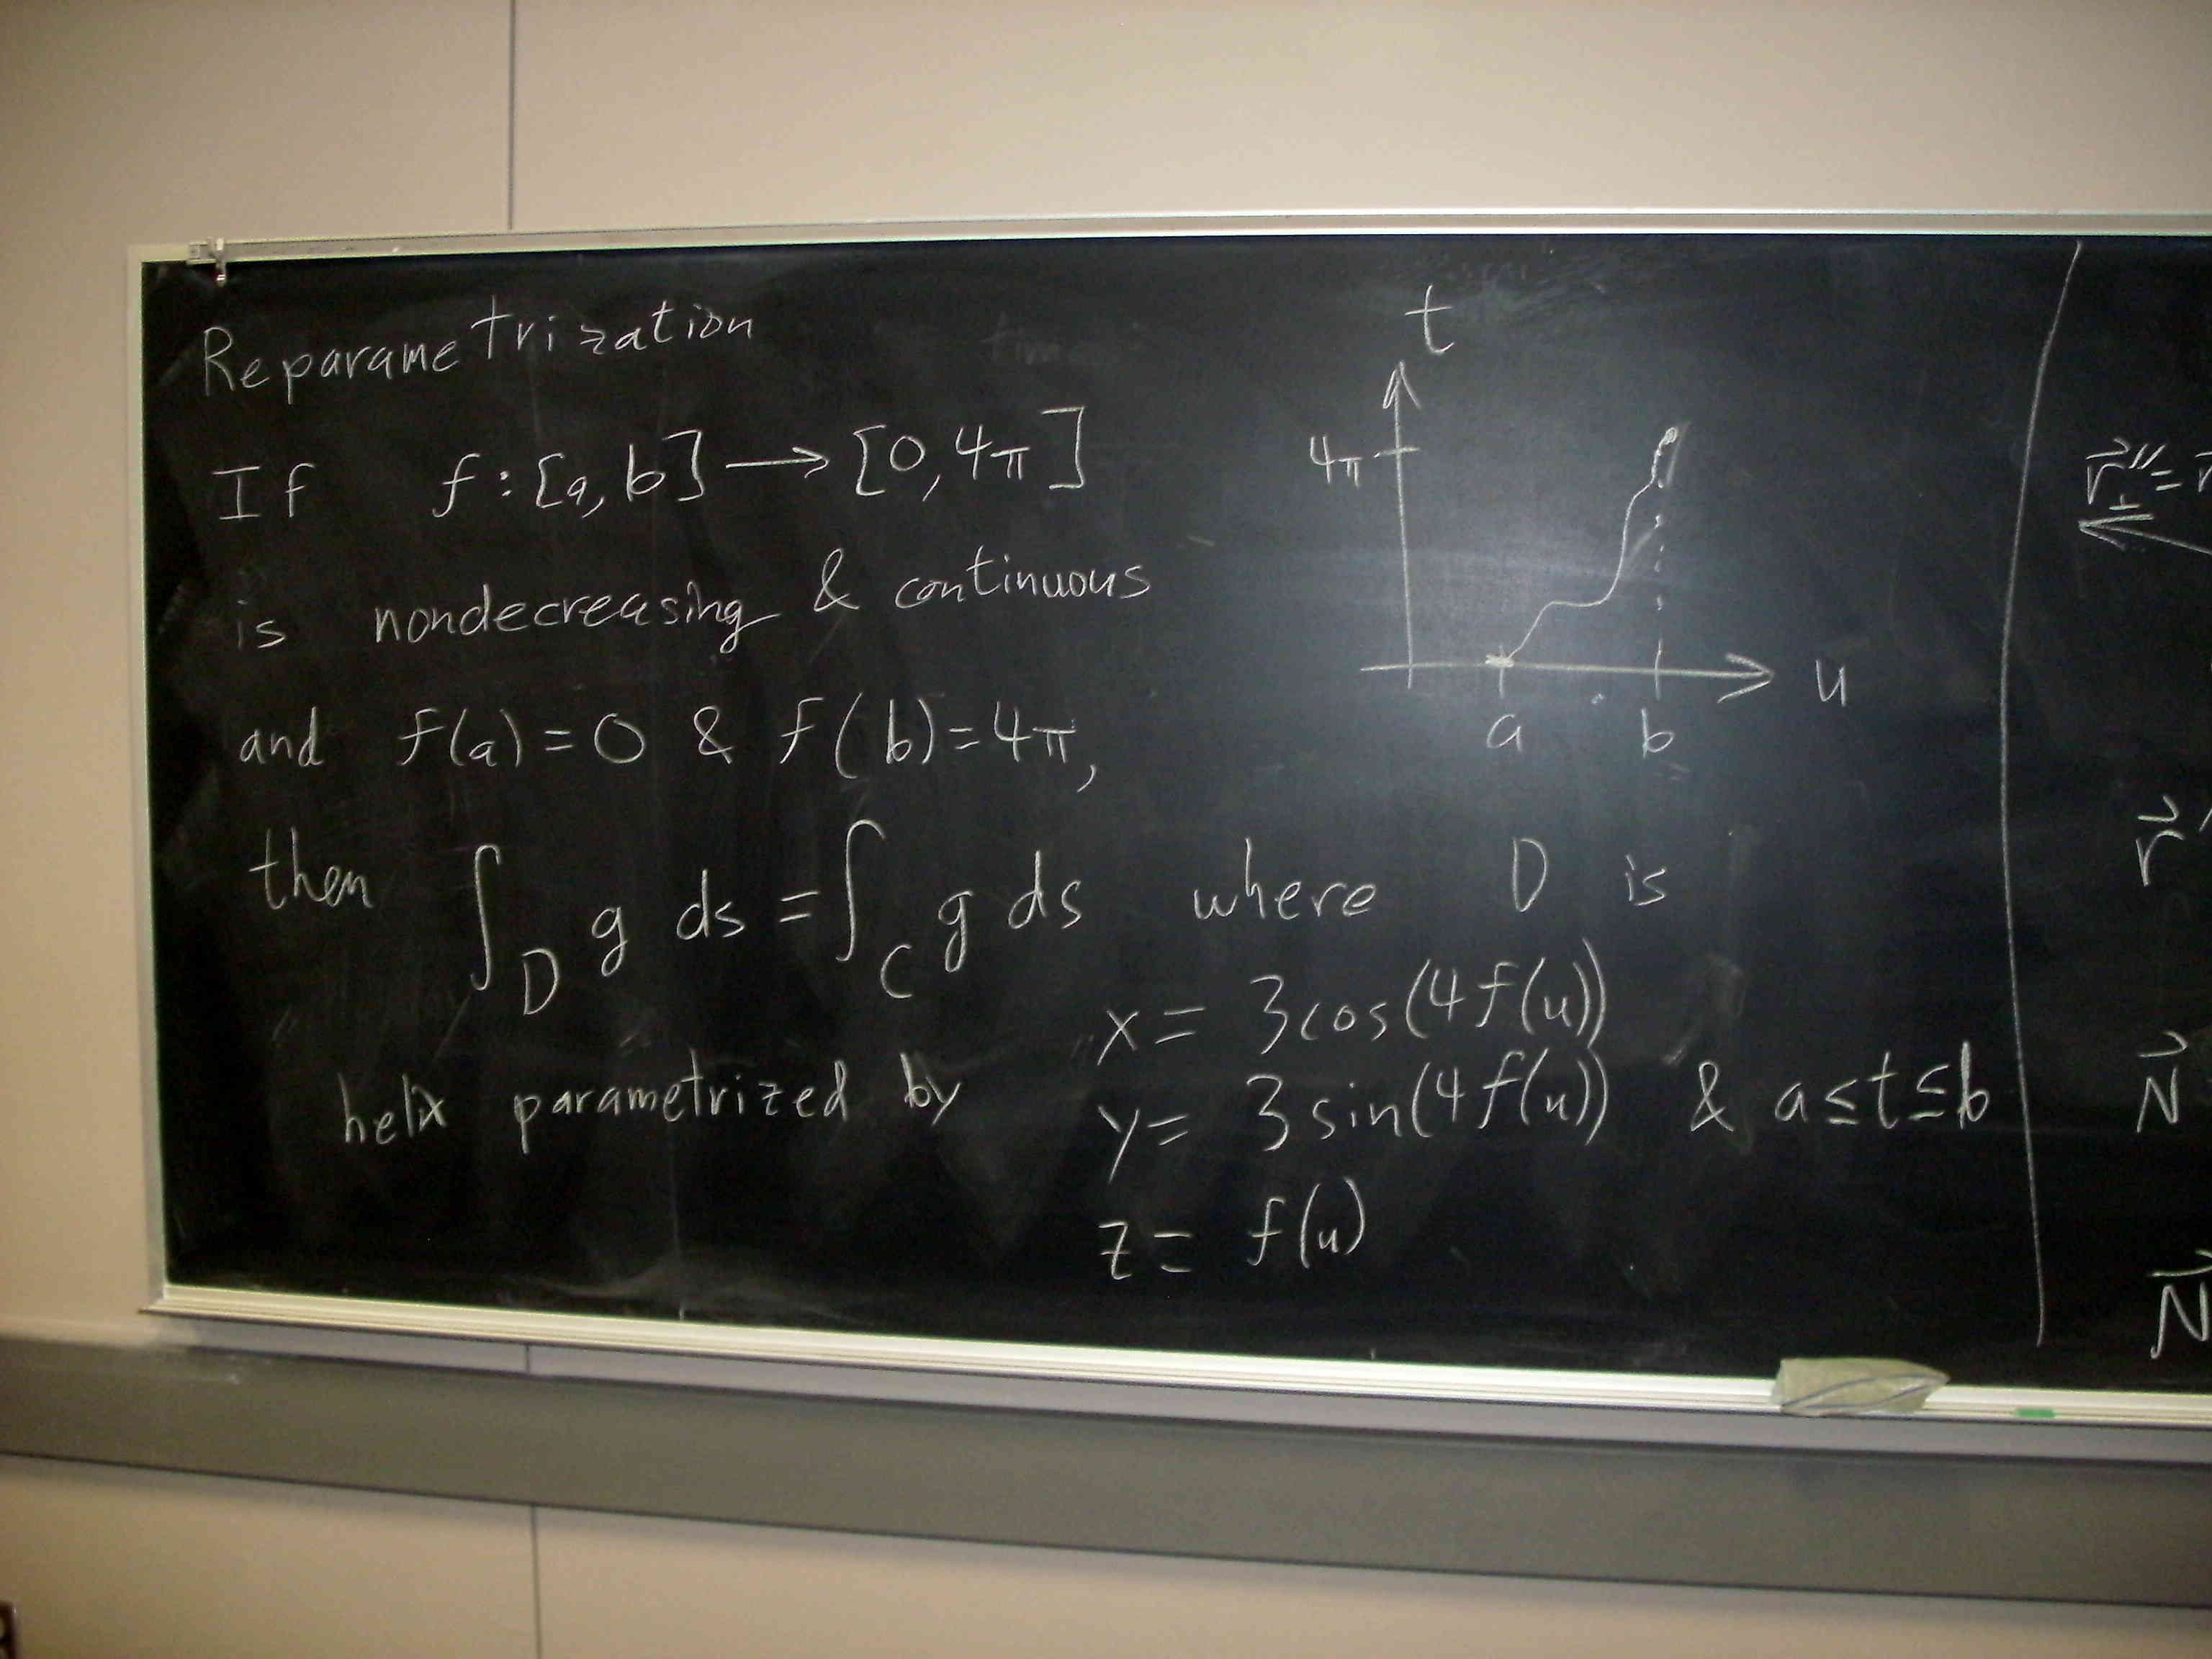 Reparametrization
If f:[a,b]→[0,4π]
is nondecreasing & continuous
and f(a)=0 & f(b)=4π,
then ∫_D g ds=∫_C g ds where D is
helix parametrized by
x= 3cos(4f(u))
y= 3sin(4f(u)) & a≤t≤b
z= f(u)
t
4π
a b
u
r⃗⊥''=
r⃗'
N⃗
N⃗